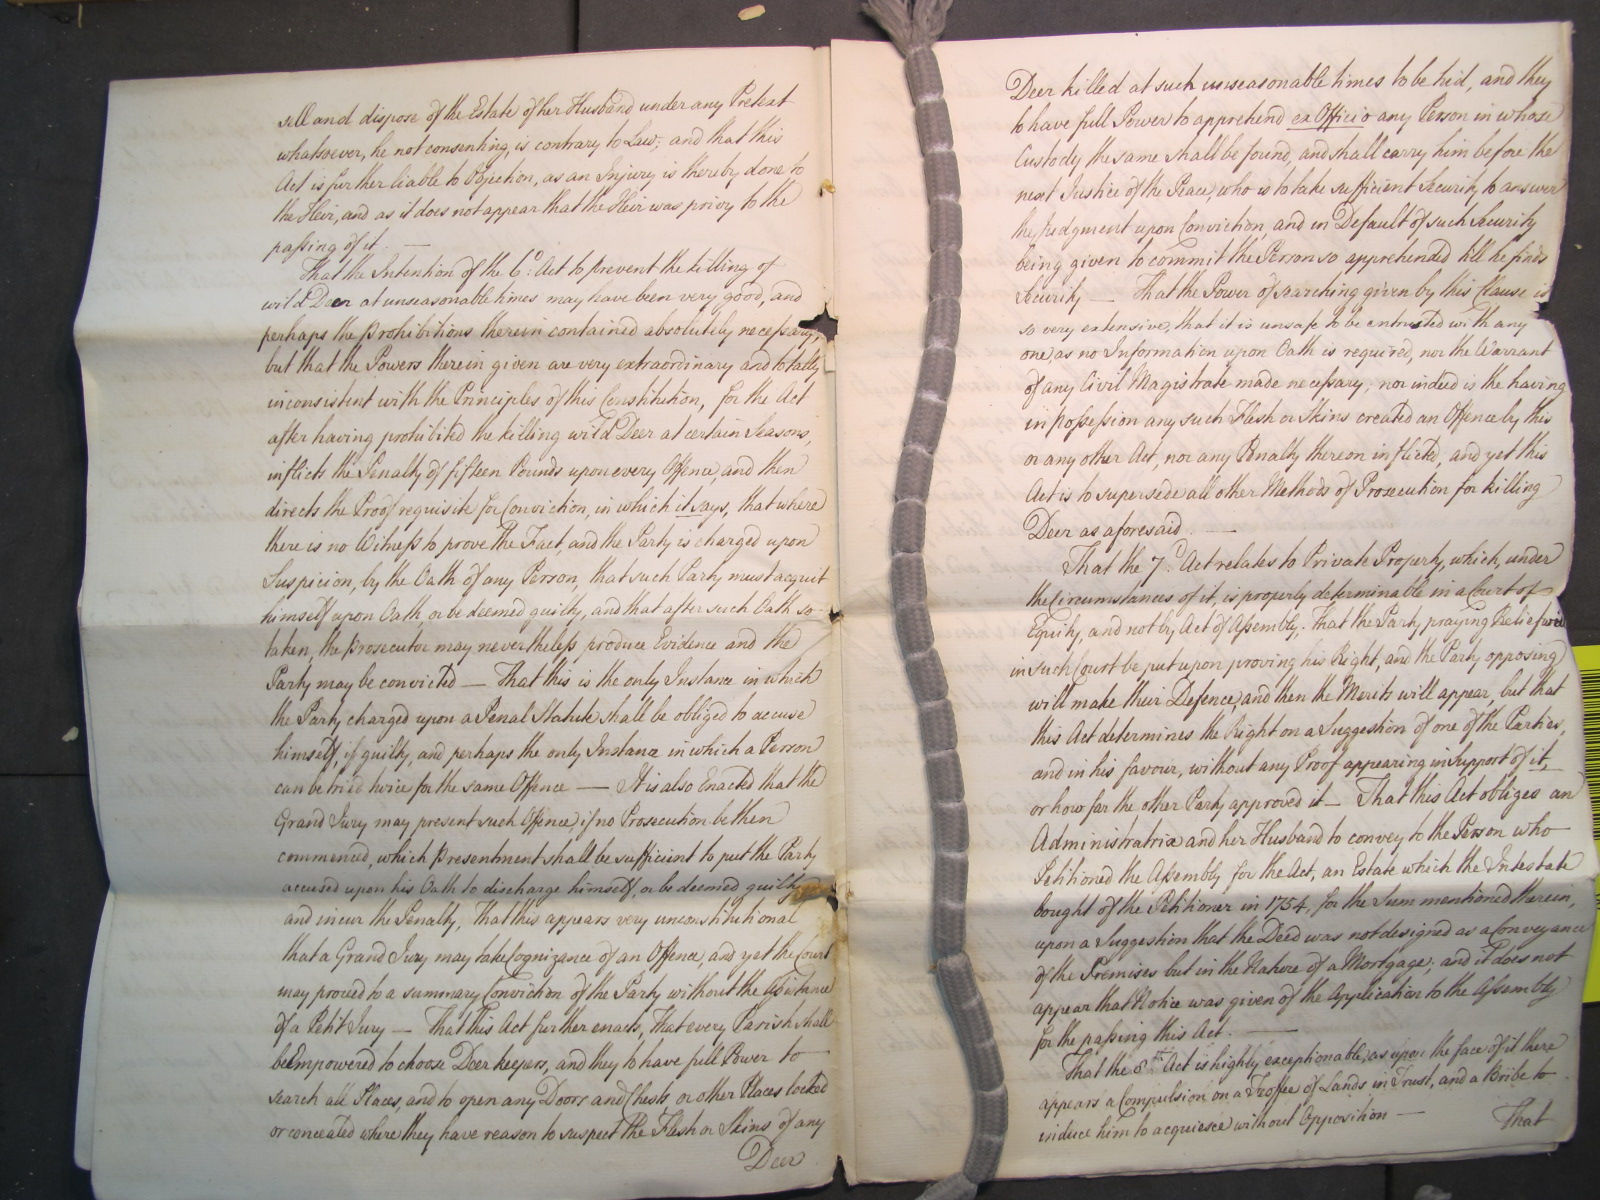 sell and dispose of the Estate of her Husband under any Pretext
whatsoever, he not consenting, is contrary to Law; and that this
Act is further liable to Objection, as an Injury is thereby done to
the Heir, and as it does not appear that the Heir was privy to the
passing of it. —
That the Intention of the 6.th Act to prevent the killing of
wild Deer at unseasonable times may have been very good, and
perhaps the prohibitions therein contained absolutely necessary,
but that the Powers therein given are very extraordinary and totally
inconsistent with the Principles of this Constitution, for the Act
after having prohibited the killing wild Deer at certain Seasons,
inflicts the Penalty of fifteen Pounds upon every Offence, and then
directs the Proof requisite for Conviction, in which it says, that where
there is no Witness to prove the Fact, and the Party is charged upon
Suspicion, by the Oath of any Person, that such Party must acquit
himself upon Oath, or be deemed guilty, and that after such Oath so
taken, the prosecutor may nevertheless produce Evidence and the
Party may be convicted — That this is the only Instance in which
the Party charged upon a Penal Statute shall be obliged to accuse
himself, if guilty, and perhaps the only Instance in which a Person
can be tried twice for the same Offence — It is also Enacted that the
Grand Jury may present such Offence, if no Prosecution be then
commenced, which presentment shall be sufficient to put the Party
accused upon his Oath to discharge himself, or be deemed guilty
and incur the Penalty, That this appears very unconstitutional
that a Grand Jury may take Cognizance of an Offence, and yet the Court
may proceed to a summary Conviction of the Party without the Assistance
of a Petit Jury — That this Act further enacts, That every Parish shall
be Empowered to choose Deer keepers, and they to have full Power to
search all Places, and to open any Doors and Chests or other Places locked
or concealed where they have reason to suspect the Flesh or Skins of any
Deer
Deer killed at such unseasonable times to be hid, and they
to have full Power to apprehend ex Officio any Person in whose
Custody the same shall be found, and shall carry him before the
next Justice of the Peace, who is to take sufficient Security to answer
the Judgment upon Conviction, and in Default of such Security
being given to commit the Person so apprehended till he finds
Security — That the Power of searching given by this Clause is
so very extensive, that it is unsafe to be entrusted with any
one, as no Information upon Oath is required, nor the Warrant
of any Civil Magistrate made necessary; nor indeed is the having
in possession any such Flesh or Skins created an Offence by this
or any other Act, nor any Penalty thereon inflicted, and yet this
Act is to supersede all other Methods of Prosecution for killing
Deer as aforesaid. —
That the 7.th Act relates to Private Property, which, under
the Circumstances of it, is properly determinable in a Court of
Equity, and not by Act of Assembly. That the Party praying Relief will
in such Court be put upon proving his Right, and the Party opposing
will make their Defence, and then the Merits will appear, but that
this Act determines the Right on a Suggestion of one of the Parties,
and in his favour, without any Proof appearing in Support of it,
or how far the other Party approved it — That this Act obliges an
Administratrix and her Husband to convey to the Person who
Petitioned the Assembly for the Act, an Estate which the Intestate
bought of the Petitioner in 1754, for the Sum mentioned therein,
upon a Suggestion that the Deed was not designed as a Conveyance
of the Premises but in the Nature of a Mortgage; and it does not
appear that Notice was given of the Application to the Assembly
for the passing this Act. —
That the 8.th Act is highly exceptionable, as upon the face of it there
appears a Compulsion on a Feoffee of Lands in Trust, and a Bribe to
induce him to acquiesce without Opposition —
That